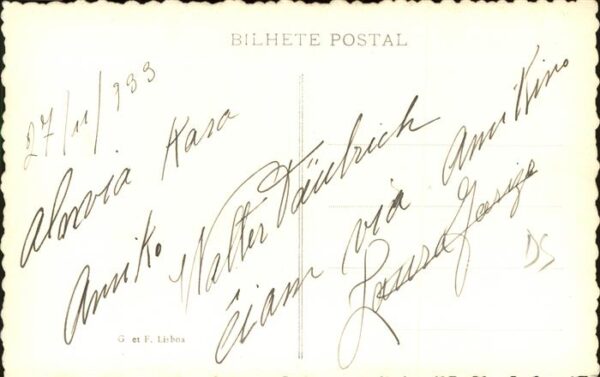 BILHETE POSTAL
27/11/933
Al mia Kara
Amiko
Walter
Ĉiam via Amikino
Laura
DS
G. et F. Lisboa